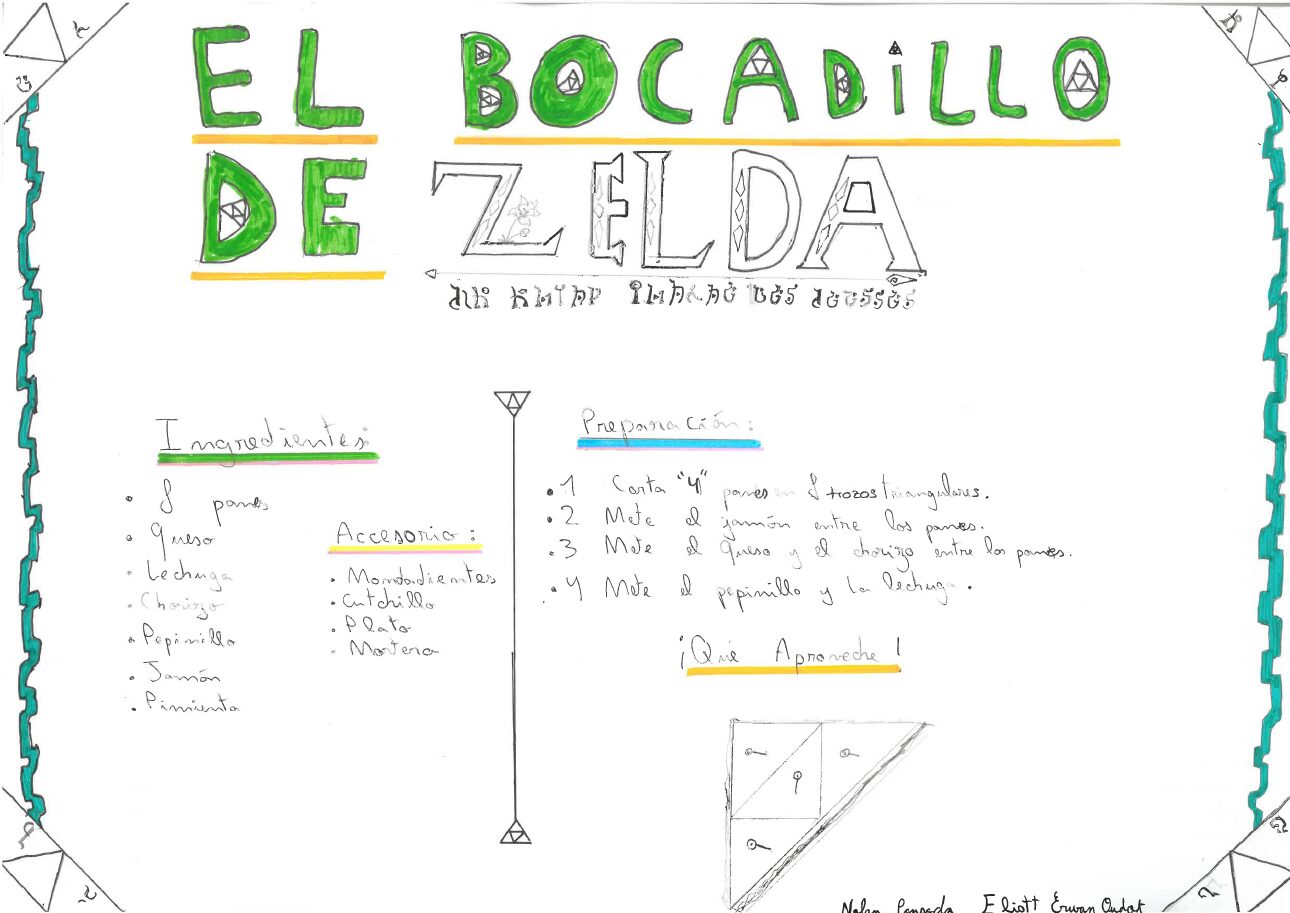 EL BOCADiLLO
DE ZELDA
Ingredientes:
• 8 panes
• Queso
• Lechuga
• Chorizo
• Pepinillo
• Jamón
• Pimienta
Accesorio:
• Mondadientes
• Cutchillo
• Plato
• Mortero
Preparación:
• 1 Corta "4" panes en 8 trozos triangulares.
• 2 Mete el jamón entre los panes.
• 3 Mete el queso y el chorizo entre los panes.
• 4 Mete el pepinillo y la lechuga.
¡Qué Aproveche!
Eliott Erwan Oudot